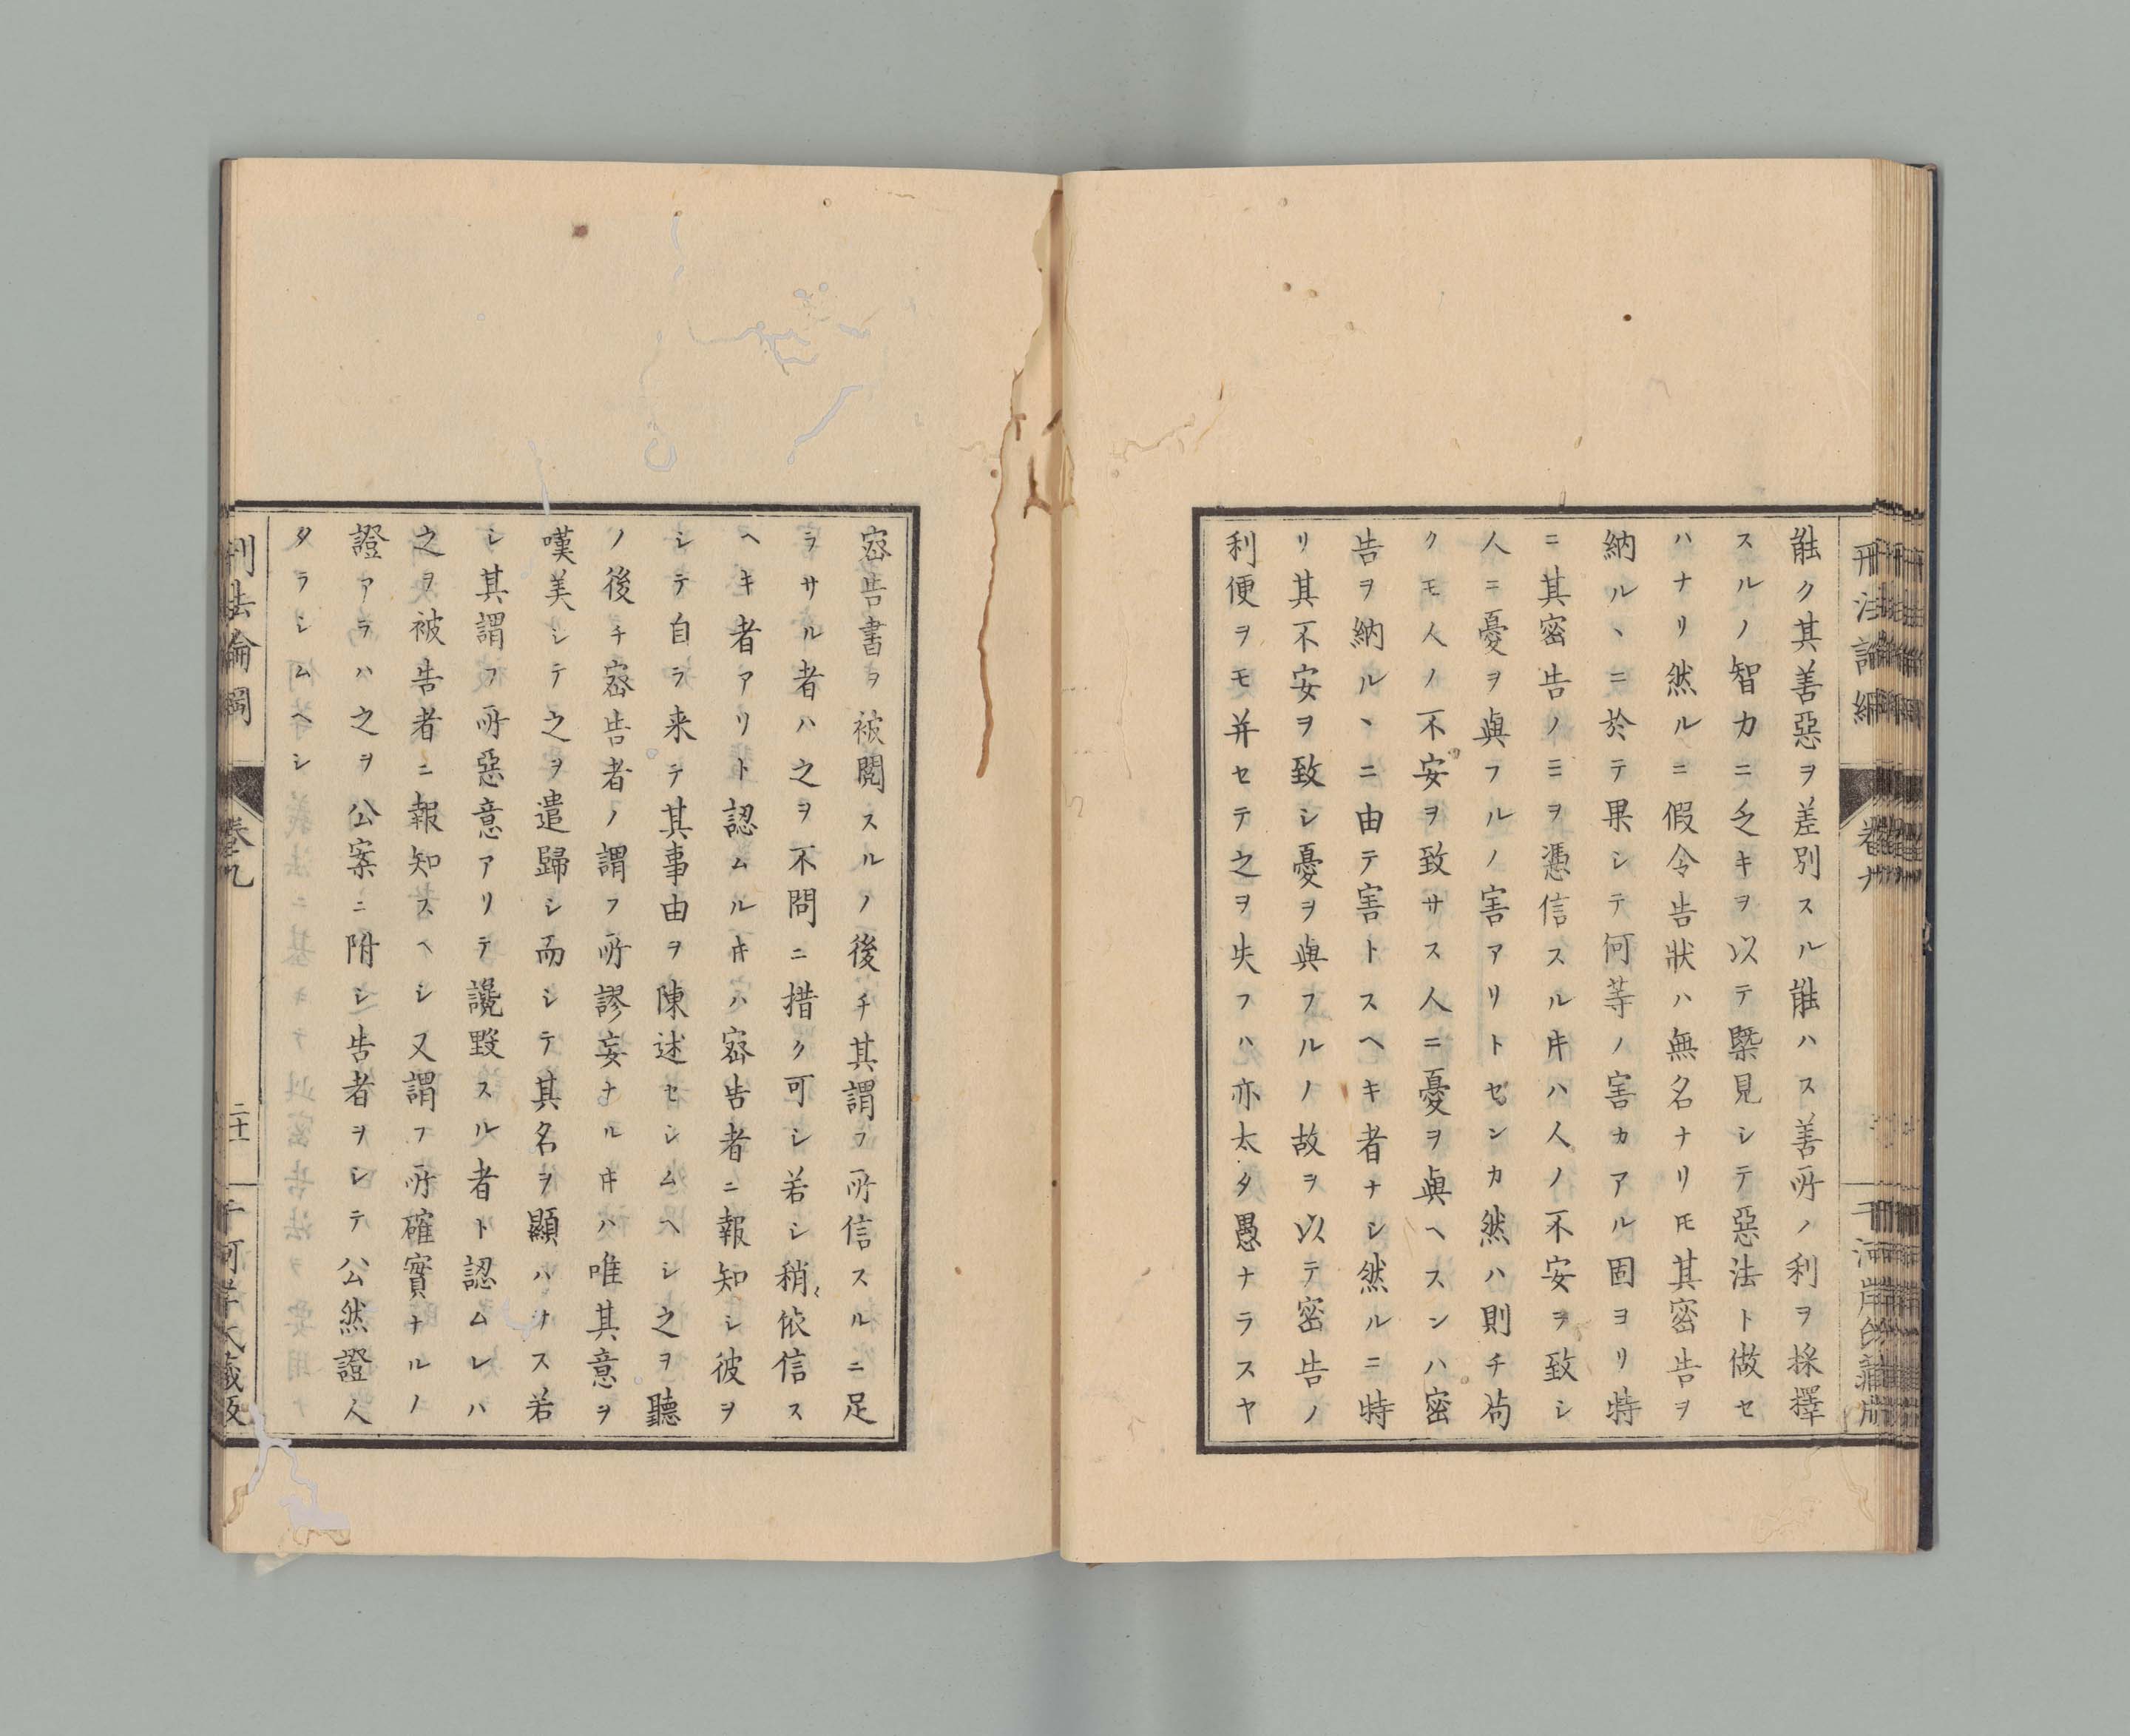 能ク其善惡ヲ差別スル能ハス善所ノ利ヲ採擇
スルノ智力ニ乏キヲ以テ槩見シテ惡法ト做セ
ハナリ然ルニ假令告狀ハ無名ナリ𪜈其密告ヲ
納ルヽニ於テ果シテ何等ノ害カアル固ヨリ特
ニ其密告ノミヲ憑信スル片ハ人ノ不安ヲ致シ
人ニ憂ヲ與フルノ害アリトセンカ然ハ則チ苟
クモ人ノ不安ヲ致サス人ニ憂ヲ與ヘスンハ密
告ヲ納ルヽニ由テ害トスヘキ者ナシ然ルニ特
リ其不安ヲ致シ憂ヲ與フルノ故ヲ以テ密告ノ
利便ヲモ并セテ之ヲ失フハ亦太タ愚ナラスヤ
密告書ヲ被閲スルノ後チ其謂フ所信スルニ足
ラサル者ハ之ヲ不問ニ措ク可シ若シ稍〻依信ス
ヘキ者アリト認ムル片ハ密告者ニ報知シ彼ヲ
シテ自ラ来テ其事由ヲ陳述セシムヘシ之ヲ聽
ノ後チ密告者ノ謂フ所謬妄ナル片ハ唯其意ヲ
嘆美シテ之ヲ遣歸シ而シテ其名ヲ顯ハサス若
シ其謂フ所惡意アリテ讒毀スル者ト認ムレハ
之ヲ被告者ニ報知スヘシ又謂フ所確實ナルノ
證アラハ之ヲ公案ニ附シ告者ヲシテ公然證人
タラシムヘシ
刑法論綱
卷九
二十一
千河岸氏藏版